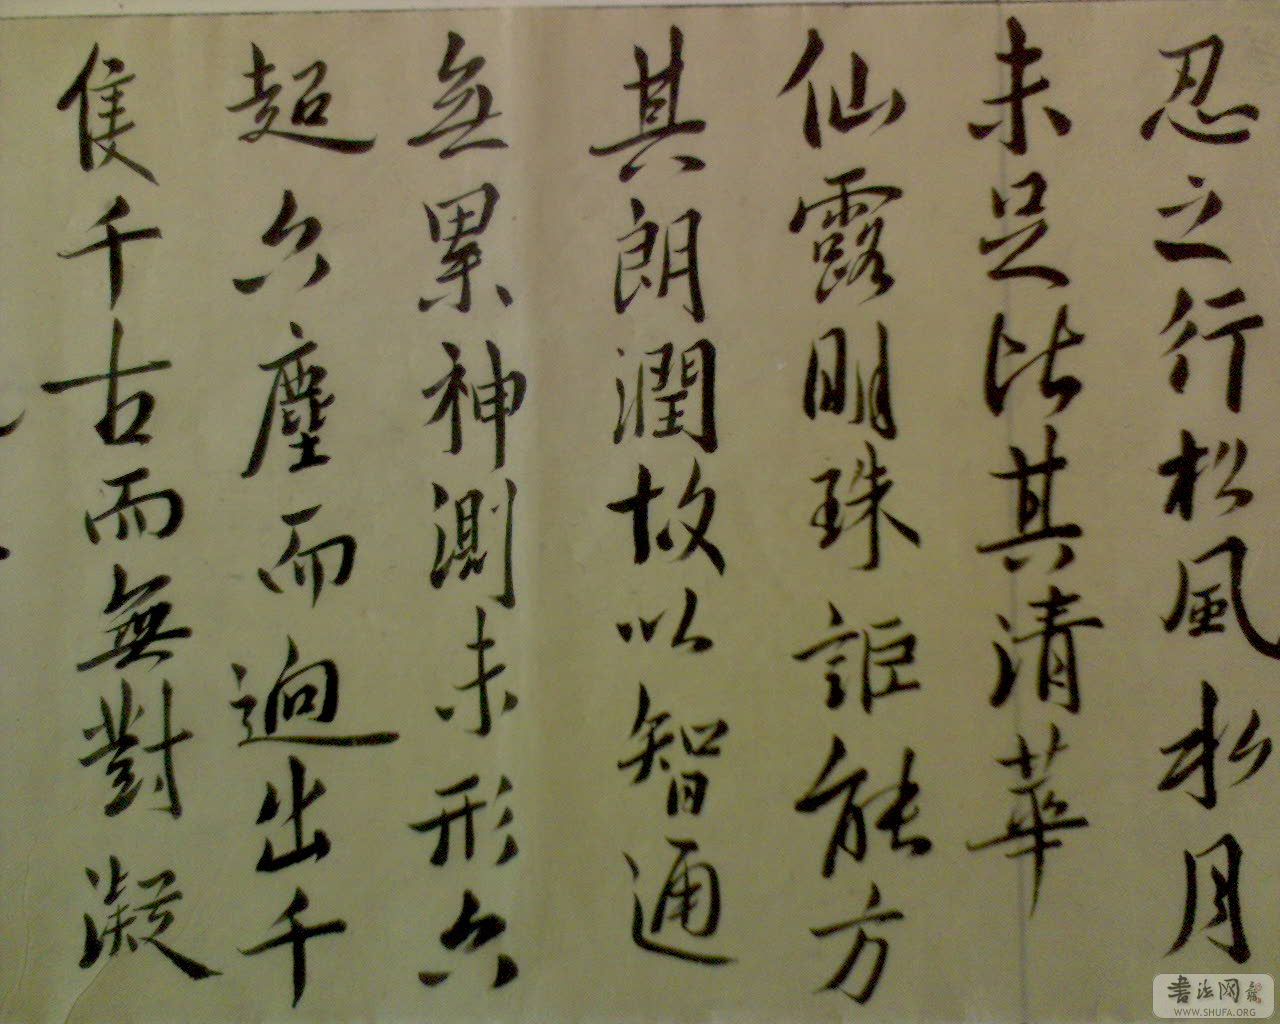 忍之行松風水月
未足比其清華
仙露明珠詎能方
其朗潤故以智通
無累神測未形六
超六塵而迥出千
隻千古而無對凝
書法网
WWW.SHUFA.ORG